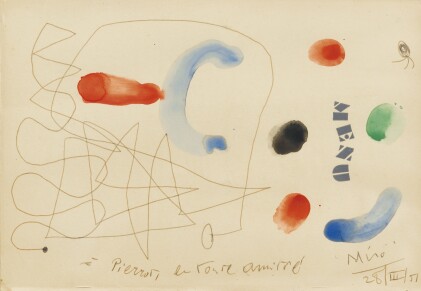 MENU
à Pierrot, en toute amitié
Miró
28/III/51